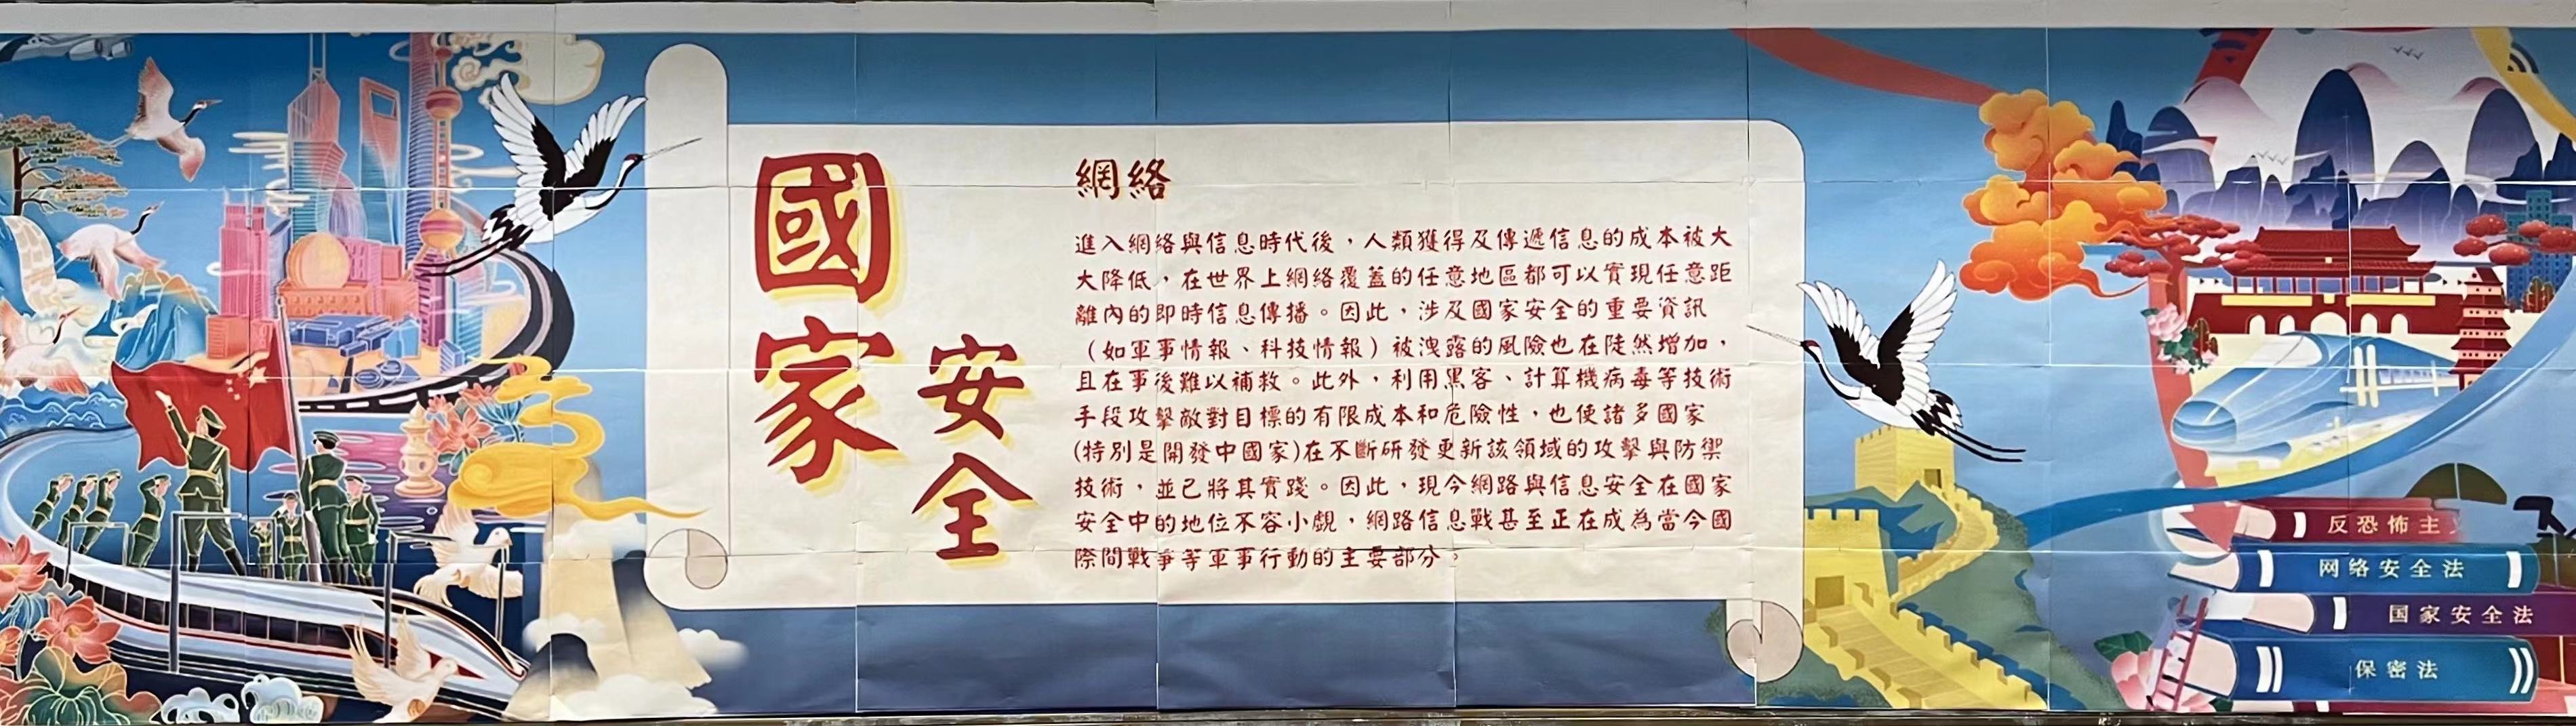 國家
安全
網絡
進入網絡與信息時代後，人類獲得及傳遞信息的成本被大
大降低，在世界上網絡覆蓋的任意地區都可以實現任意距
離內的即時信息傳播。因此，涉及國家安全的重要資訊
（如軍事情報、科技情報）被洩露的風險也在陡然增加，
且在事後難以補救。此外，利用黑客、計算機病毒等技術
手段攻擊敵對目標的有限成本和危險性，也使諸多國家
(特別是開發中國家)在不斷研發更新該領域的攻擊與防禦
技術，並已將其實踐。因此，現今網路與信息安全在國家
安全中的地位不容小覷，網路信息戰甚至正在成為當今國
際間戰爭等軍事行動的主要部分。
反恐怖主
网络安全法
国家安全法
保密法